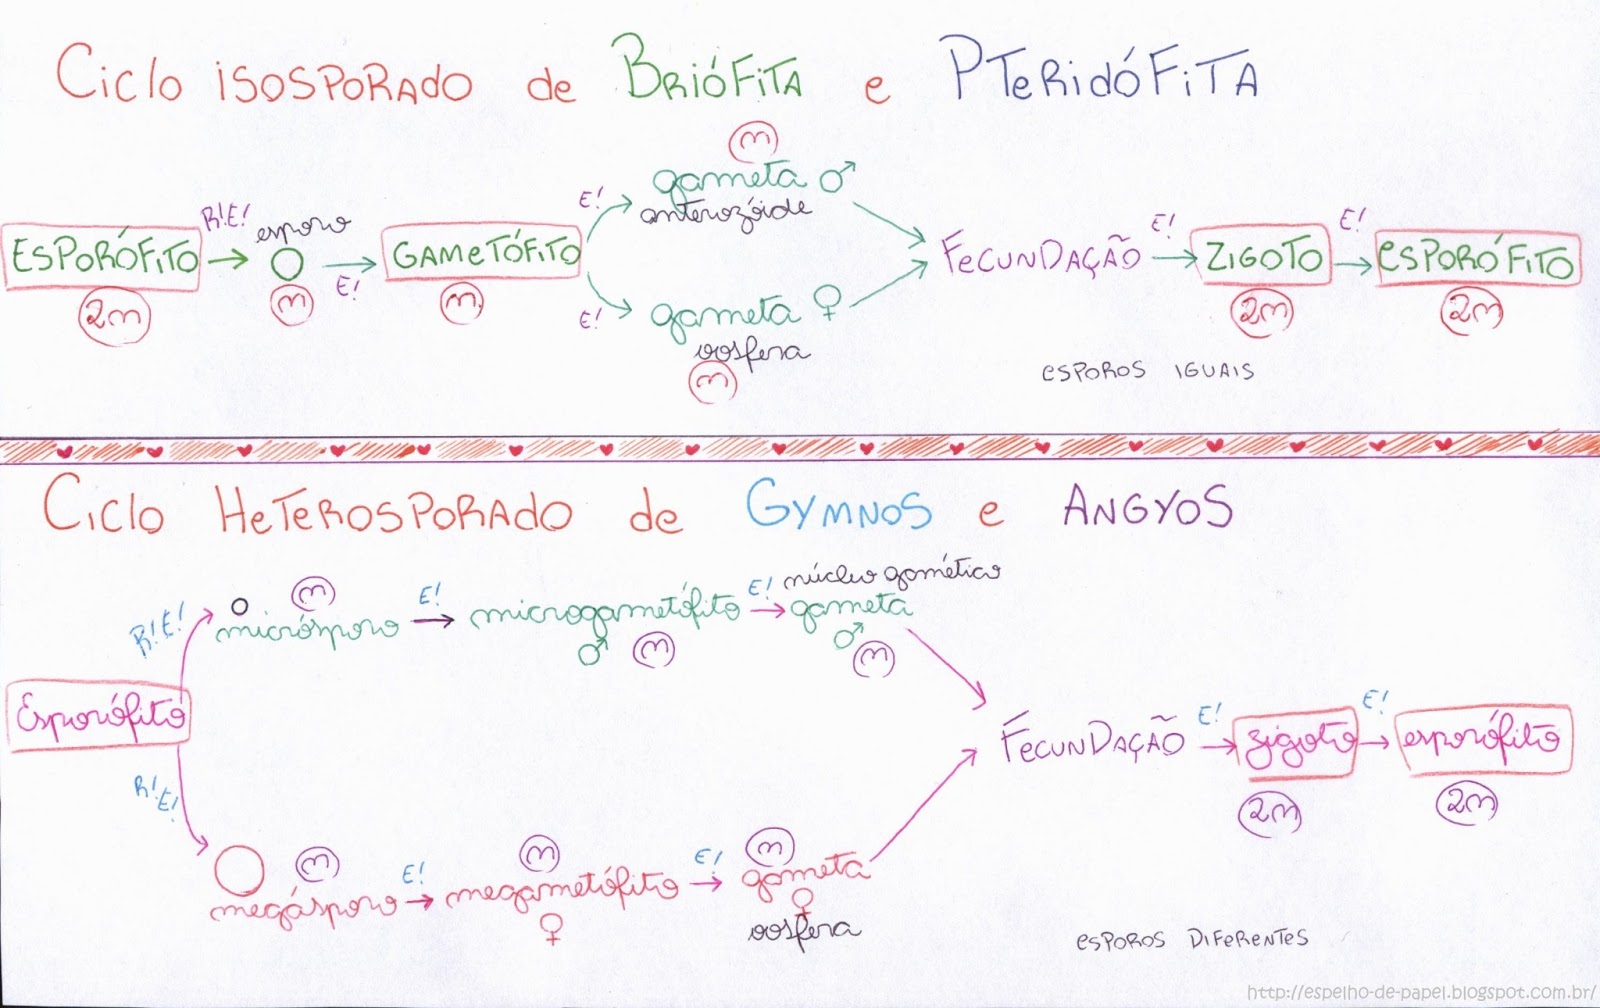 Ciclo isosporado de Briófita e Pteridófita
n
gameta ♂
anterozóide
E!
R!E!
esporo
ESPORÓFITO
2n
n
E!
GAMETÓFITO
n
E!
gameta ♀
oosfera
n
FECUNDAÇÃO
E!
ZIGOTO
2n
E!
ESPORÓFITO
2n
ESPOROS IGUAIS
Ciclo Heterosporado de Gymnos e Angyos
R!E!
n
micrósporo
E!
microgametófito
♂
n
E!
núcleo gamético
gameta
♂
n
Esporófito
R!E!
n
megásporo
E!
n
megametófito
♀
E!
n
gameta
♀
oosfera
FECUNDAÇÃO
E!
zigoto
2n
E!
esporófito
2n
ESPOROS DIFERENTES
http://espelho-de-papel.blogspot.com.br/